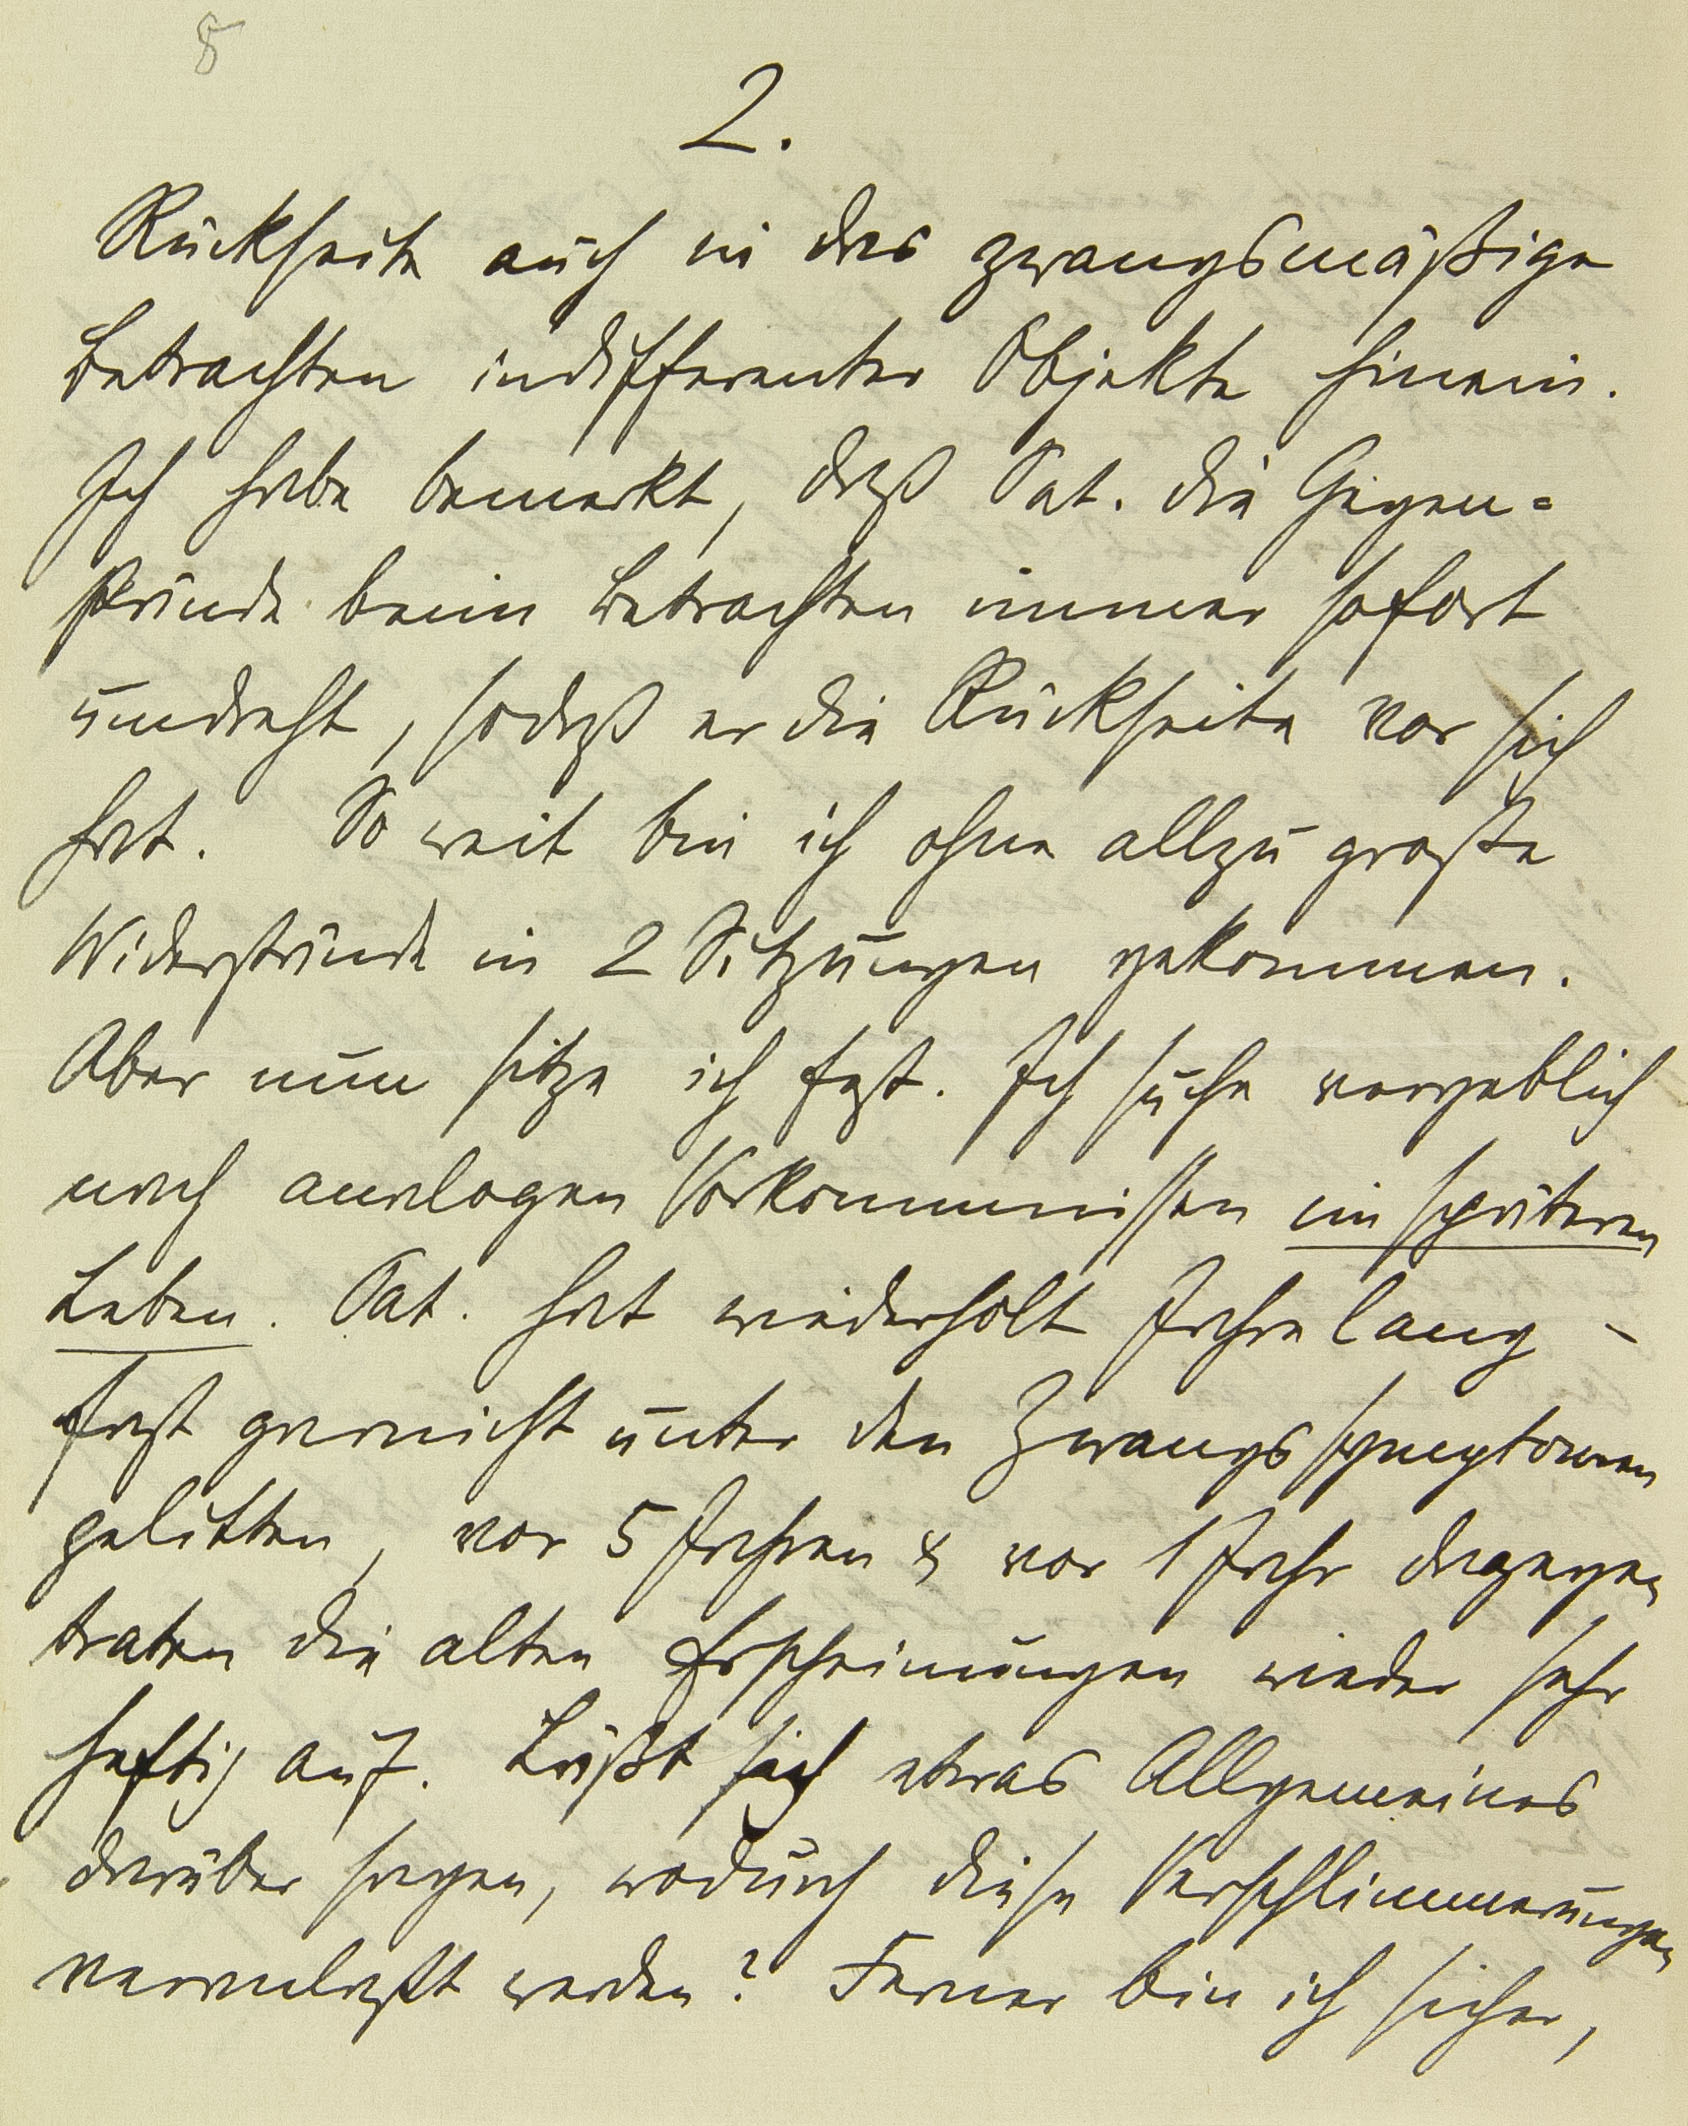 8
2.
Rückseite auch in das zwangsmäßige
Betrachten indifferenter Objekte hinein.
Ich habe bemerkt, daß Pat. die Gegen-
stände beim Betrachten immer sofort
umdreht, sodaß er die Rückseite vor sich
hat. So weit bin ich ohne allzu große
Widerstände in 2 Sitzungen gekommen.
Aber nun sitze ich fest. Ich suche vergeblich
nach analogen Vorkommnissen im späteren
Leben. Pat. hat wiederholt Jahre lang
fast garnicht unter den Zwangssymptomen
gelitten, vor 5 Jahren & vor 1 Jahr dagegen
traten die alten Erscheinungen wieder sehr
heftig auf. Läßt sich etwas Allgemeines
darüber sagen, wodurch diese Verschlimmerungen
veranlaßt werden? Ferner bin ich sicher,